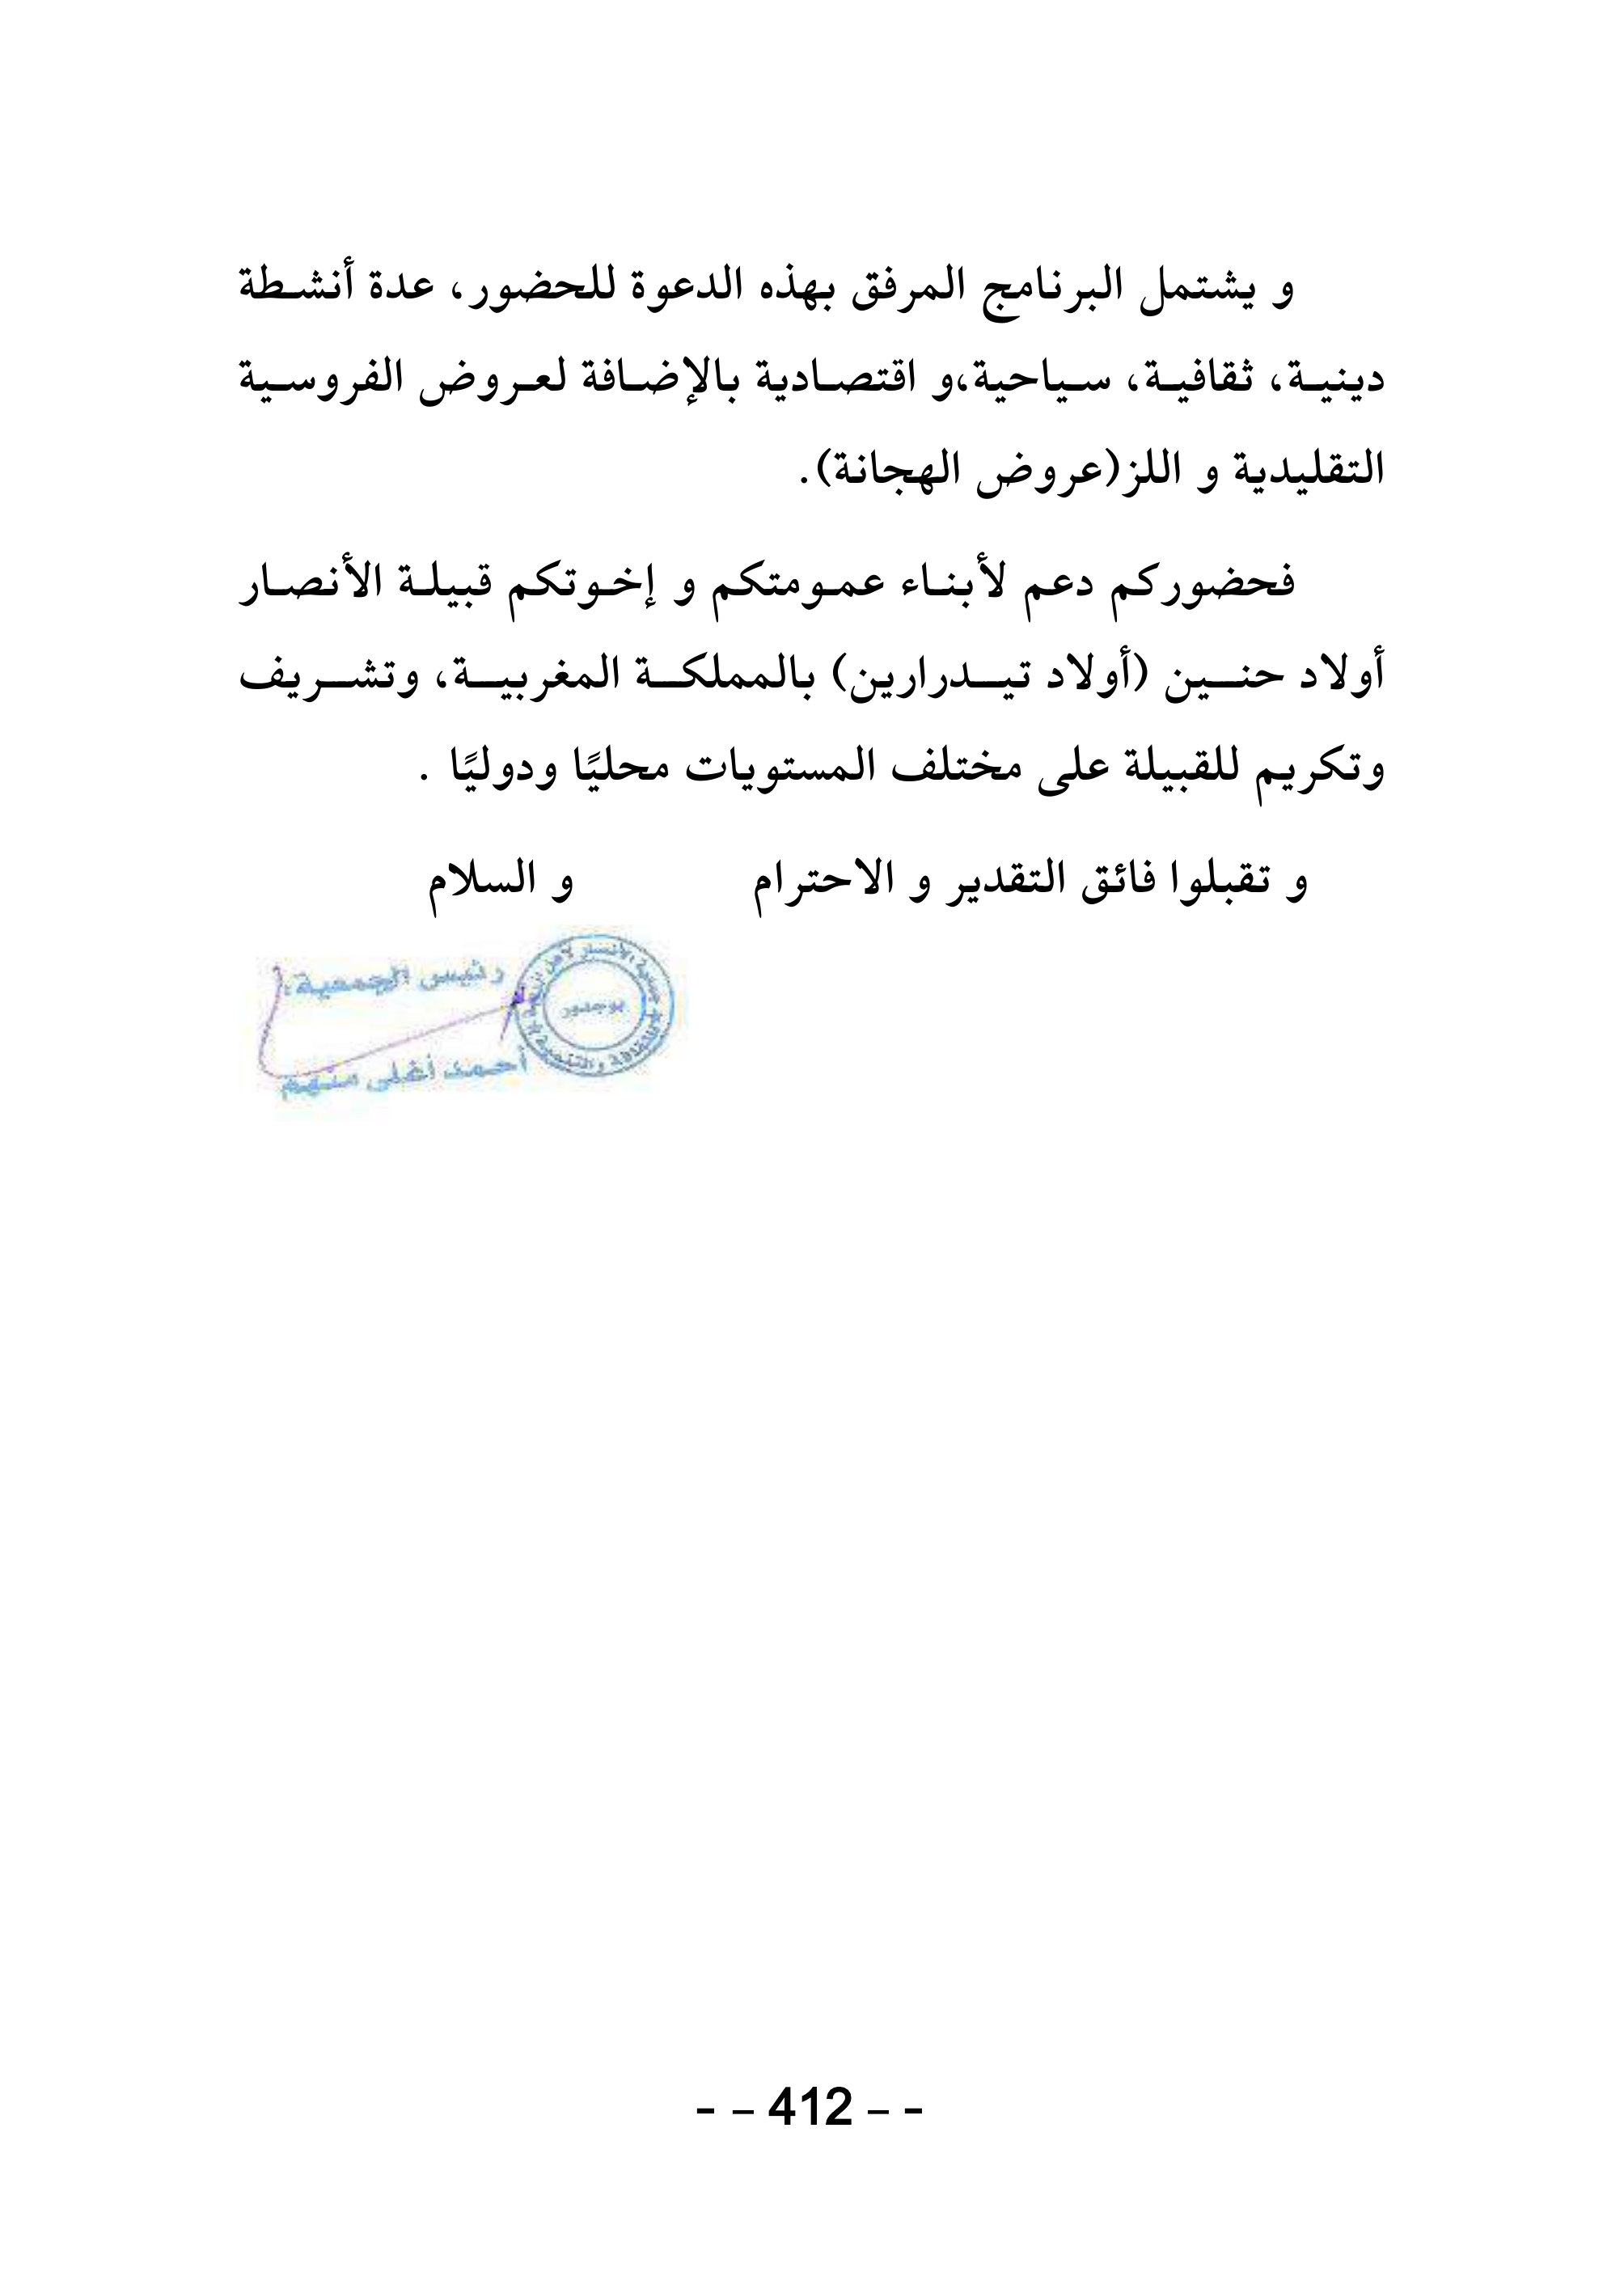 و يشتمل البرنامج المرفق بهذه الدعوة للحضور، عدة أنشطة
دينية، ثقافية، سياحية،و اقتصادية بالإضافة لعروض الفروسية
التقليدية و اللز(عروض الهجانة).
فحضوركم دعم لأبناء عمومتكم و إخوتكم قبيلة الأنصار
أولاد حنين (أولاد تيدرارين) بالمملكة المغربية، وتشريف
وتكريم للقبيلة على مختلف المستويات محليًا ودوليًا .
و تقبلوا فائق التقدير و الاحترام و السلام
رئيس الجمعية:
بوجدور
أحمد
- – 412 – -